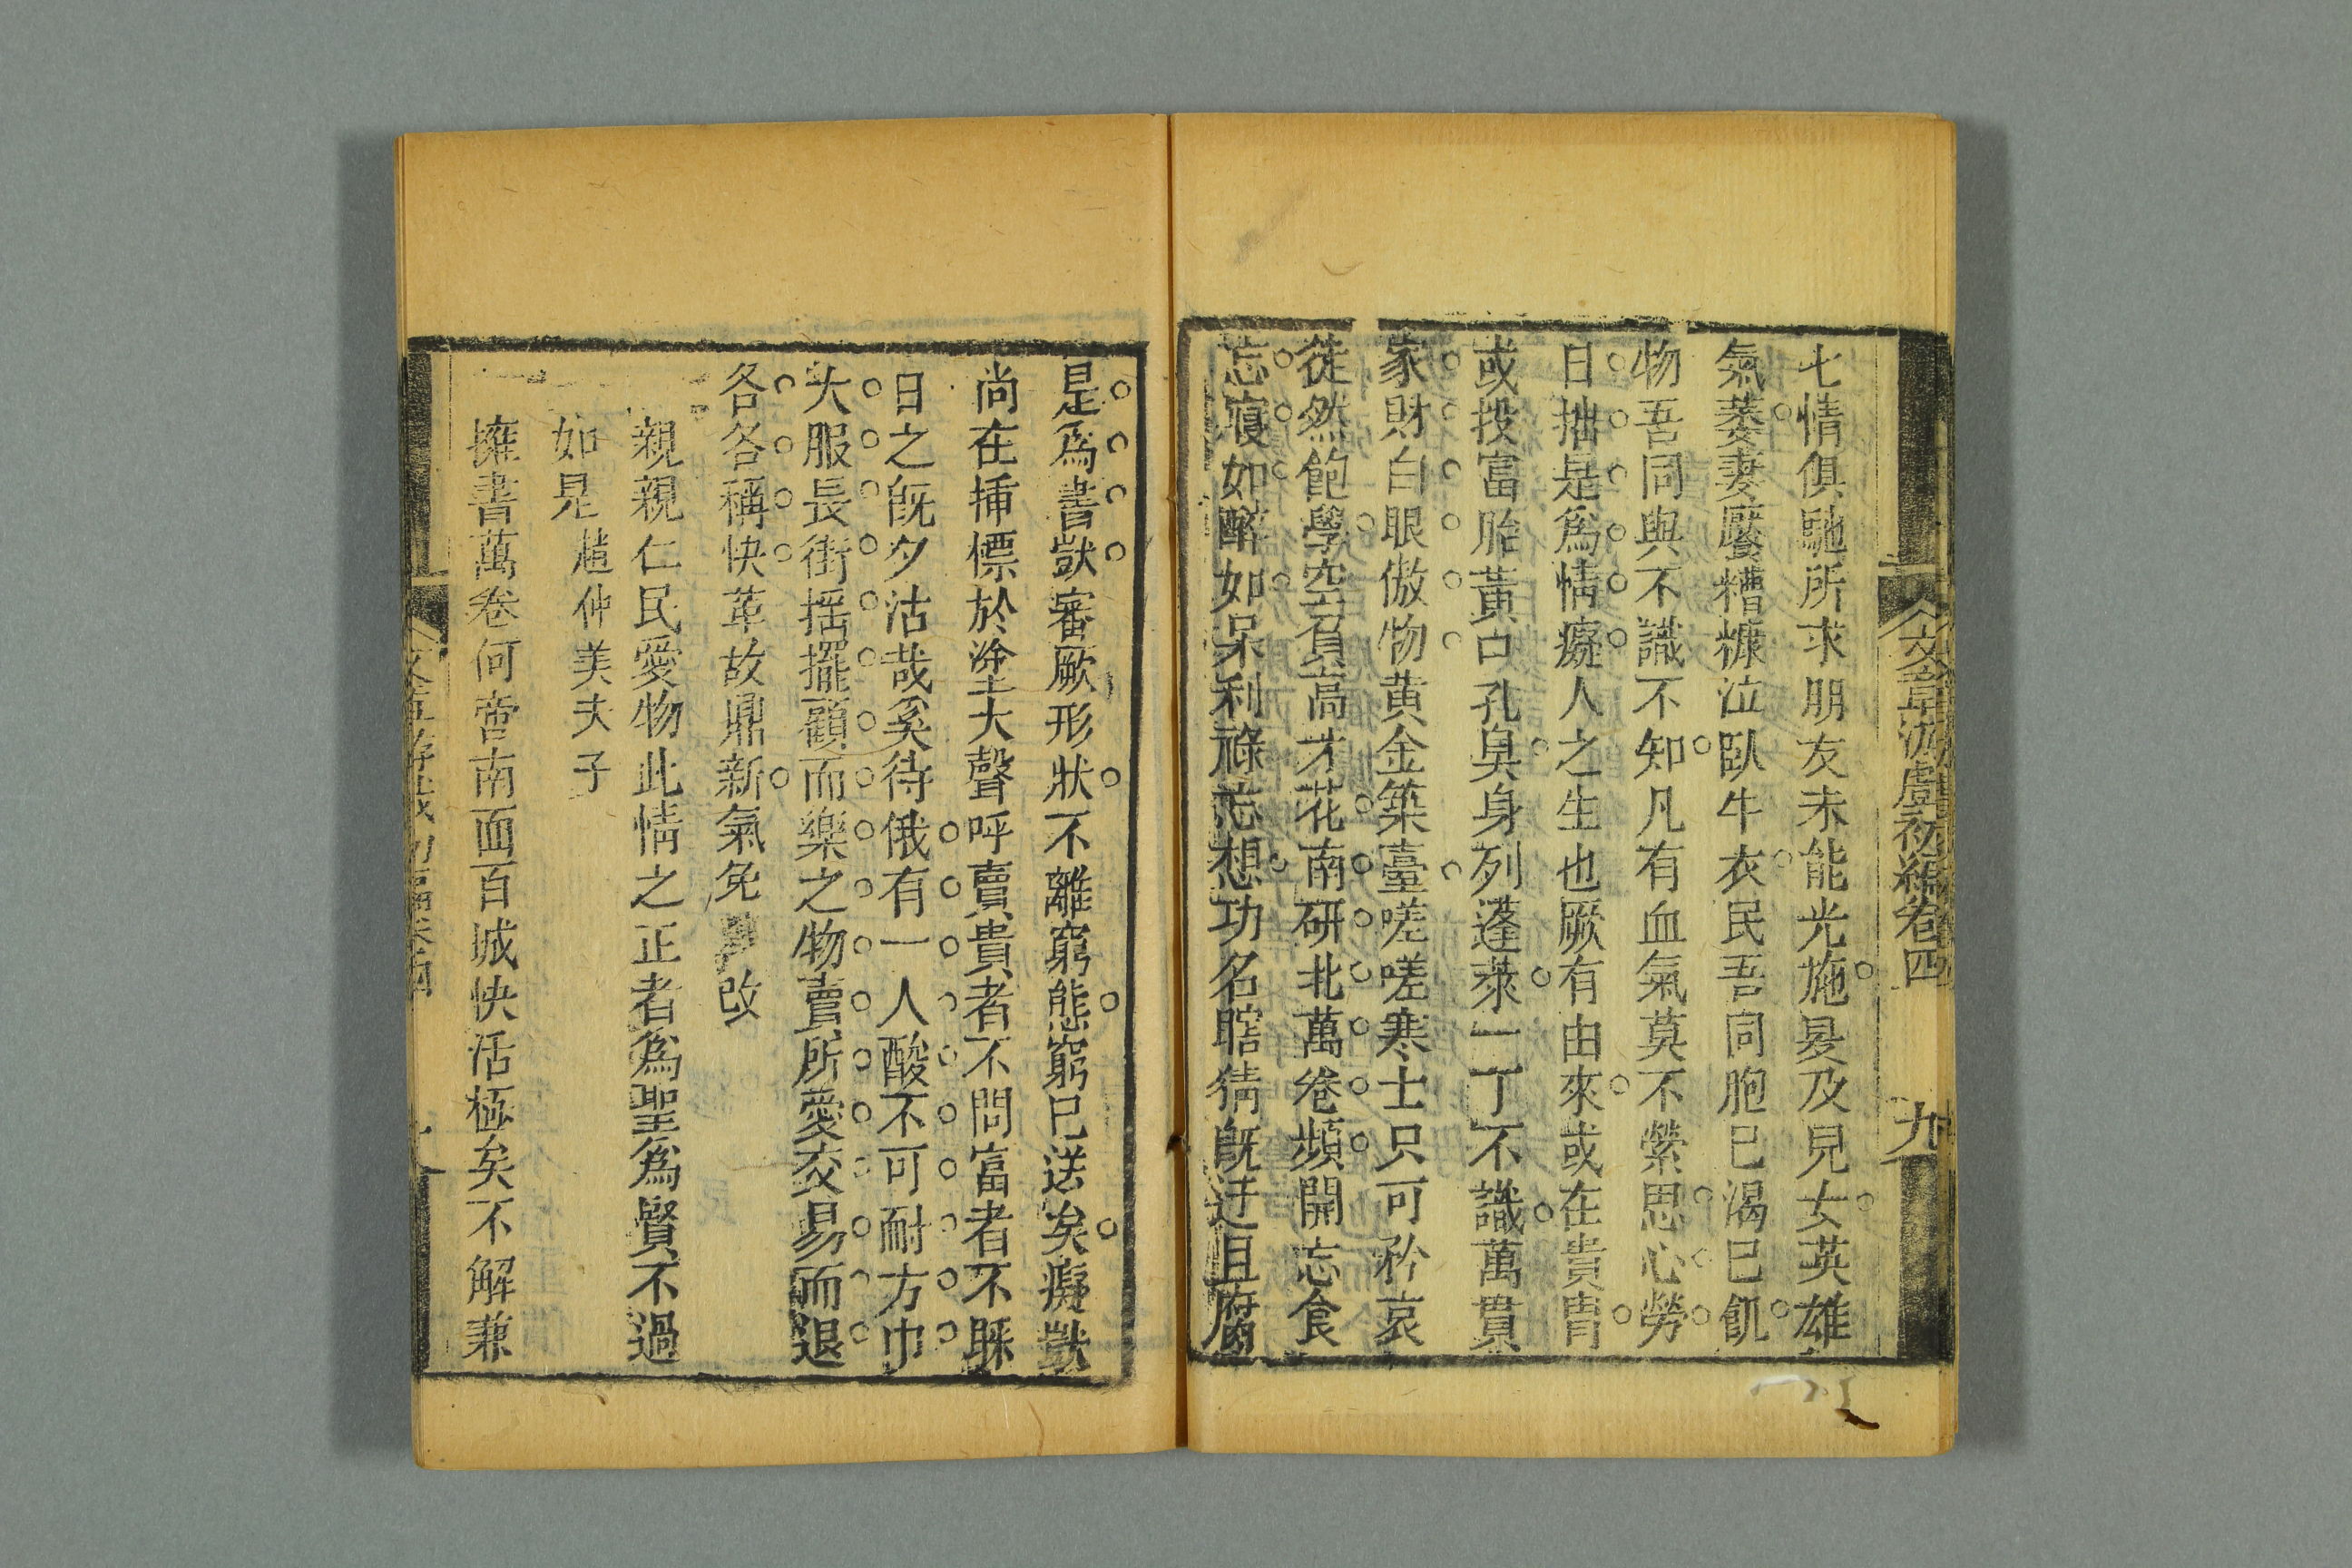 文章游戲初編卷四　九
七情俱馳所求朋友未能光施爰及兒女英雄
氣萎妻饜糟糠泣臥牛衣民吾同胞已渴已飢
物吾同與不識不知凡有血氣莫不縈思心勞
日拙是爲情癡人之生也厥有由來或在貴冑
或投富胎黃口孔臭身列蓬萊一丁不識萬貫
家財白眼傲物黃金築臺嗟嗟寒士只可矜哀
徒然飽學空負高才花南研北萬卷頻開忘食
忘寢如醉如呆利祿忘想功名瞎猜旣迂且腐
是爲書獃審厥形狀不離窮態窮已送矣癡獃
尚在揷標於塗大聲呼賣貴者不問富者不睬
日之旣夕沽哉奚待俄有一人酸不可耐方巾
大服長街搖擺顧而樂之物賣所愛交易而退
各各稱快革故鼎新氣免改
親親仁民愛物此情之正者爲聖爲賢不過
如是　趙仲美夫子
擁書萬卷何啻南面百城快活極矣不解兼